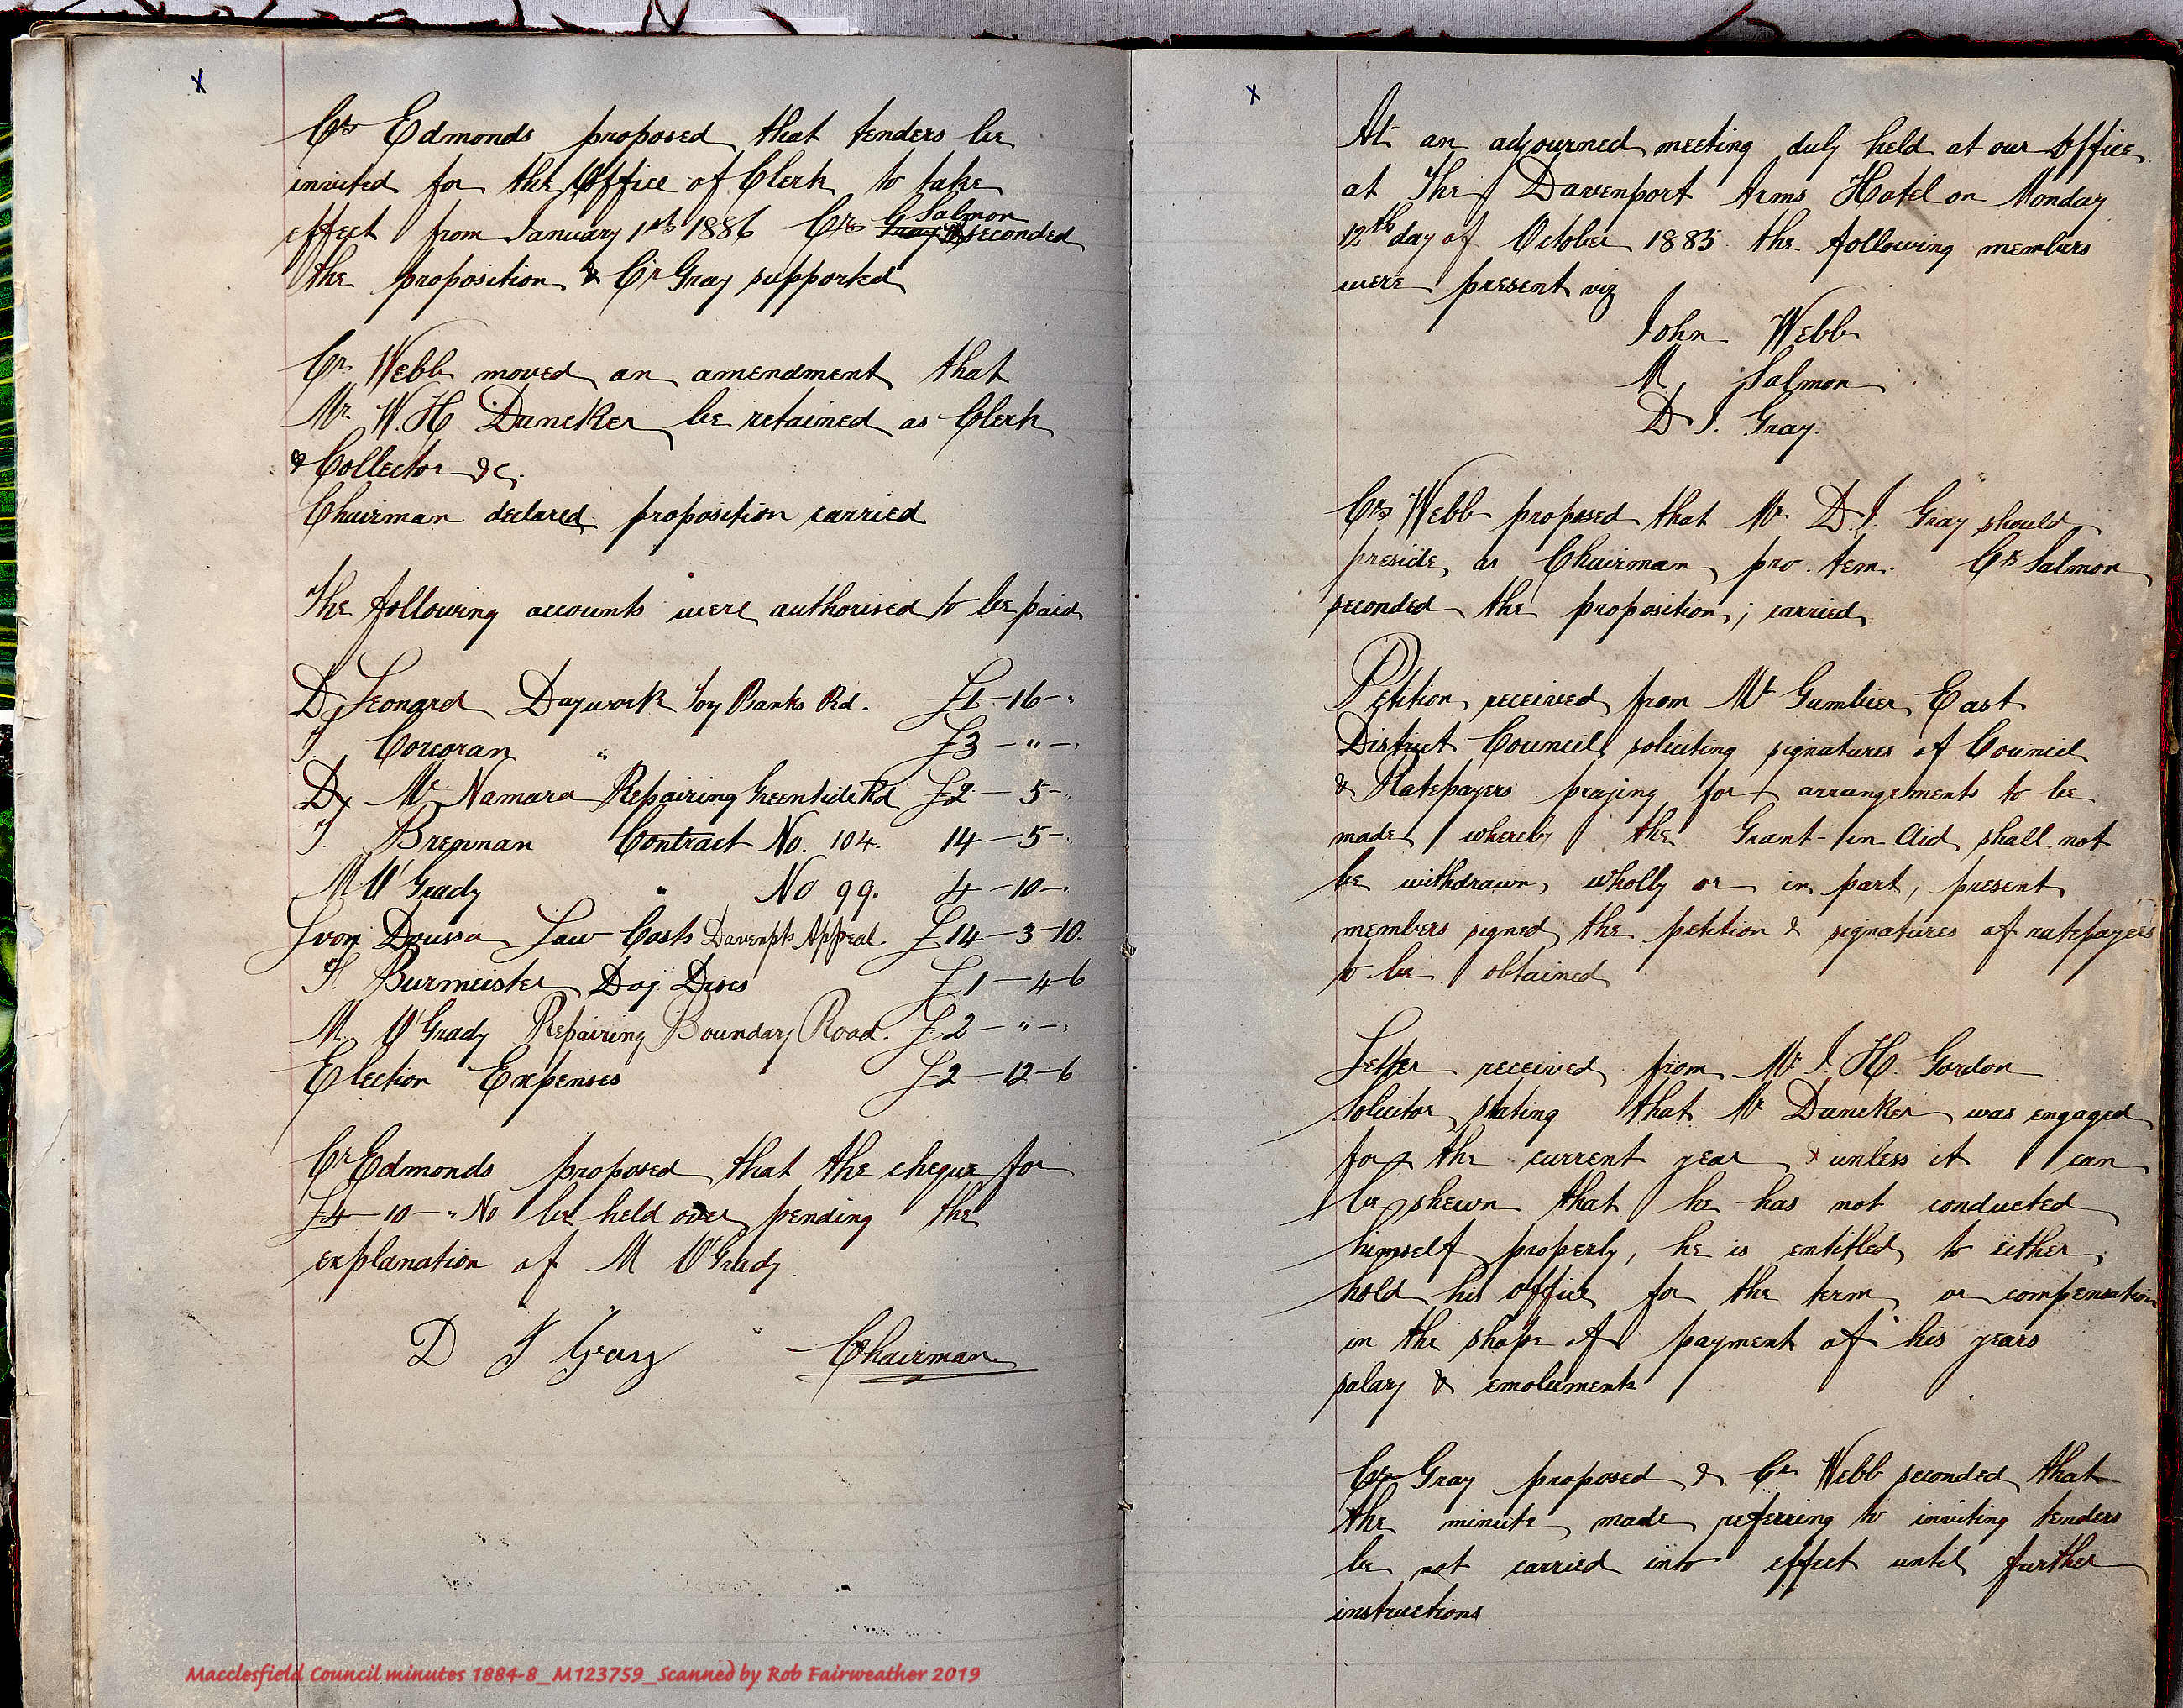 x
Crs Edmonds proposed that tenders be
invited for the Office of Clerk to take
effect from January 1st 1886 Crs G Salmon
seconded
the proposition & Cr Gray supported
Cr Webb moved an amendment that
Mr W. H Duncker be retained as Clerk
& Collector &c.
Chairman declared proposition carried
The following accounts were authorised to be paid
D Leonard Daywork Banks Rd. £1-16-"
T Corcoran " £3-"-"
D McNamara Repairing Greenhide Rd £2-5-"
T. Brennan Contract No. 104. 14-5-"
M O'Grady " No 99. 4-10-"
L von Doussa Law Costs Davenpt Appeal. £14-3-10.
F. Burmeister Dog Discs £1-4-6
M. O'Grady Repairing Boundary Road. £2-"-"
Election Expenses £2-12-6
Cr Edmonds proposed that the cheque for
£4-10-" No be held over pending the
explanation of M O'Grady
D J Gray Chairman
x
At an adjourned meeting duly held at our Office
at The Davenport Arms Hotel on Monday
12th day of October 1885 the following members
were present viz
John Webb
M. Salmon
D J. Gray.
Crs Webb proposed that Mr. D. J. Gray should
preside as Chairman pro. tem. Cr Salmon
seconded the proposition; carried
Petition received from Mt Gambier East
District Council soliciting signatures of Council
& Ratepayers praying for arrangements to be
made whereby the Grant-in-Aid shall not
be withdrawn wholly or in part, present
members signed the petition & signatures of ratepayers
to be obtained
Letter received from Mr J. H. Gordon
Solicitor stating that Mr Duncker was engaged
for the current year & unless it can
be shewn that he has not conducted
himself properly, he is entitled to either
hold his office for the term or compensation
in the shape of payment of his years
salary & emoluments
Cr Gray proposed & Cr Webb seconded that
the minute made referring to inviting tenders
be not carried into effect until further
instructions
Macclesfield Council minutes 1884-8_M123759_Scanned by Rob Fairweather 2019